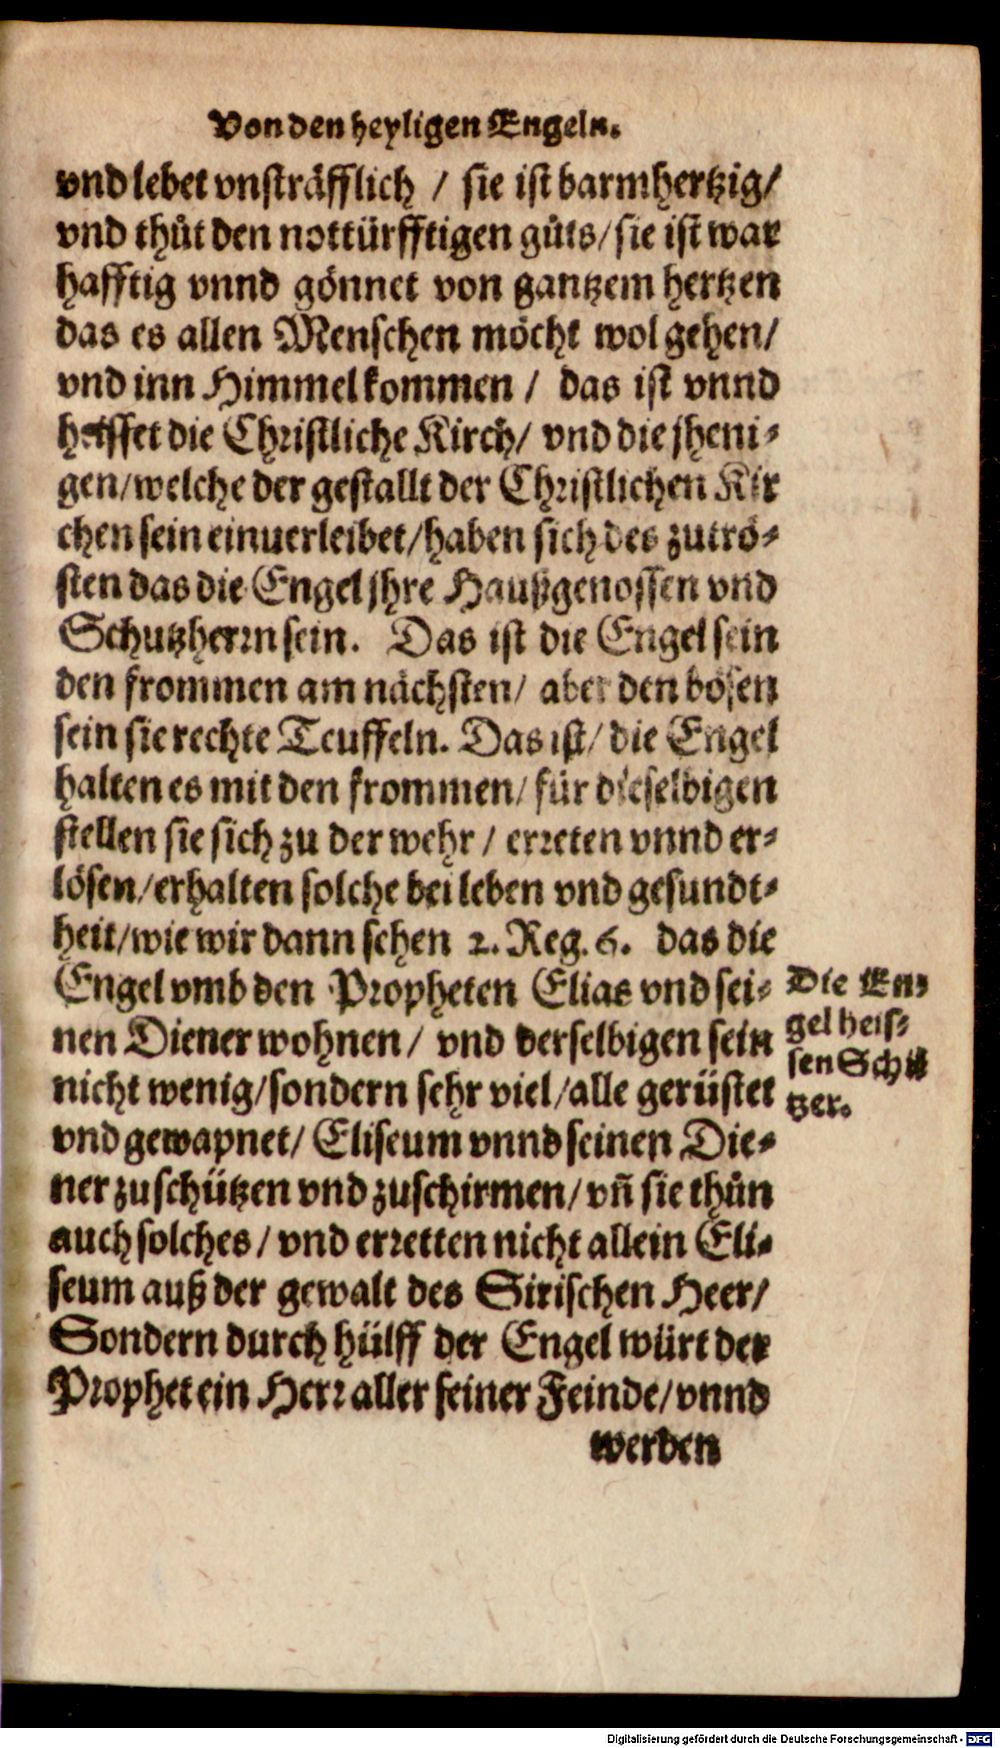 Von den heyligen Engeln.
vnd lebet vnsträfflich / sie ist barmhertzig/
vnd thůt den nottürfftigen gůts/sie ist war
hafftig vnnd gönnet von gantzem hertzen
das es allen Menschen möcht wol gehen/
vnd inn Himmel kommen / das ist vnnd
heisset die Christliche Kirch/ vnd die jheni-
gen/welche der gestallt der Christlichen Kir
chen sein einuerleibet/haben sich des zutrö-
sten das die Engel jhre Haußgenossen vnd
Schutzherrn sein. Das ist die Engel sein
den frommen am nächsten/ aber den bösen
sein sie rechte Teuffeln. Das ist/ die Engel
halten es mit den frommen/ für dieselbigen
stellen sie sich zu der wehr / erreten vnnd er-
lösen/erhalten solche bei leben vnd gesundt-
heit/wie wir dann sehen 2. Reg. 6. das die
Engel vmb den Propheten Elias vnd sei-
nen Diener wohnen/ vnd derselbigen sein
nicht wenig/sondern sehr viel/alle gerüstet
vnd gewapnet/ Eliseum vnnd seinen Die-
ner zu schützen vnd zuschirmen/vñ sie thůn
auch solches / vnd erretten nicht allein Eli-
seum auß der gewalt des Sirischen Heer/
Sondern durch hülff der Engel würt der
Prophet ein Herr aller seiner Feinde/vnnd
werden
Die En-
gel heis-
sen Schü
tzer.
Digitalisierung gefördert durch die Deutsche Forschungsgemeinschaft - DFG